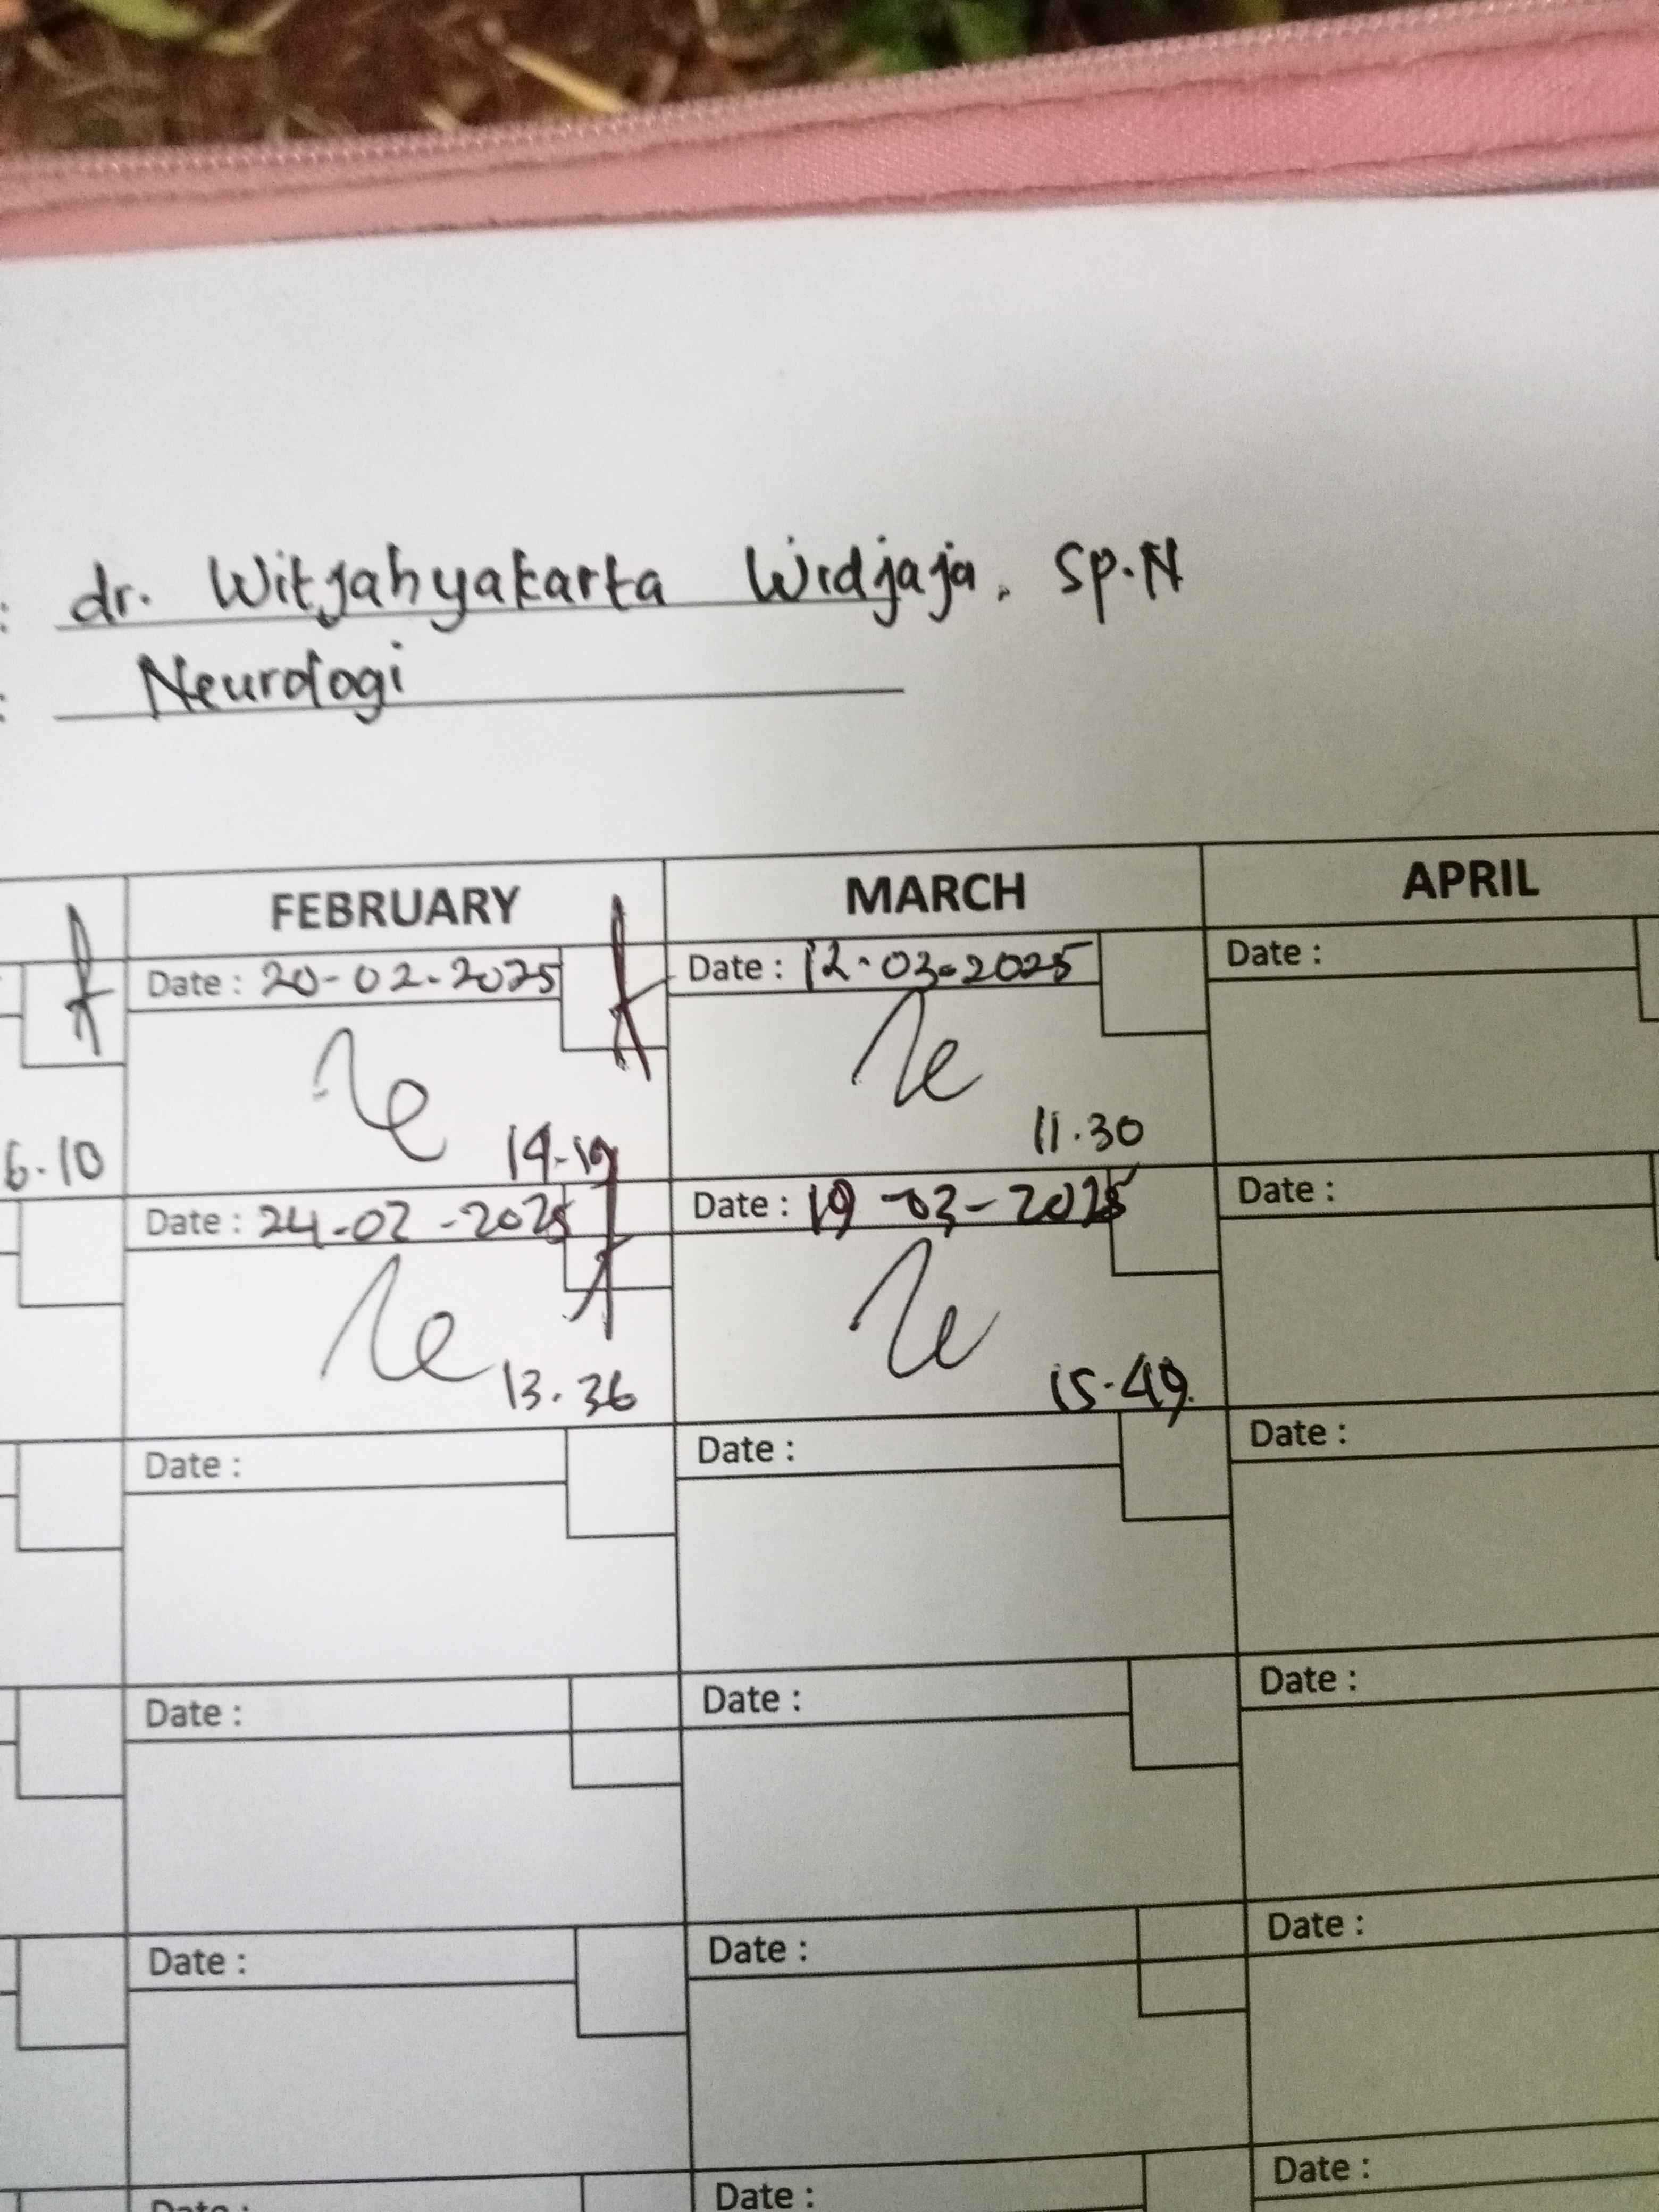 : dr. Witjahyakarta Widjaja, Sp.N
: Neurologi
FEBRUARY MARCH APRIL
Date : 20-02-2025 Date : 12-03-2025 Date :
6.10 14-19 11.30
Date : 24-02-2025 Date : 19-03-2025 Date :
13.36 15.49
Date : Date : Date :
Date : Date : Date :
Date : Date : Date :
Date : Date : Date :